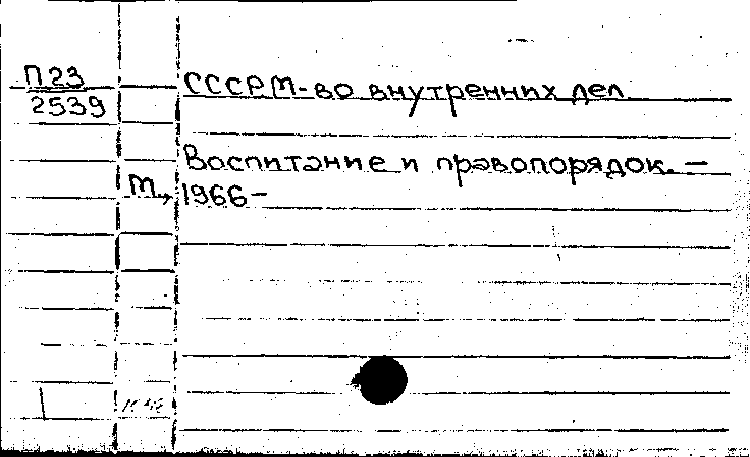 П23
2539
СССР М-во внутренних дел
Воспитание и правопорядок. —
М., 1966—